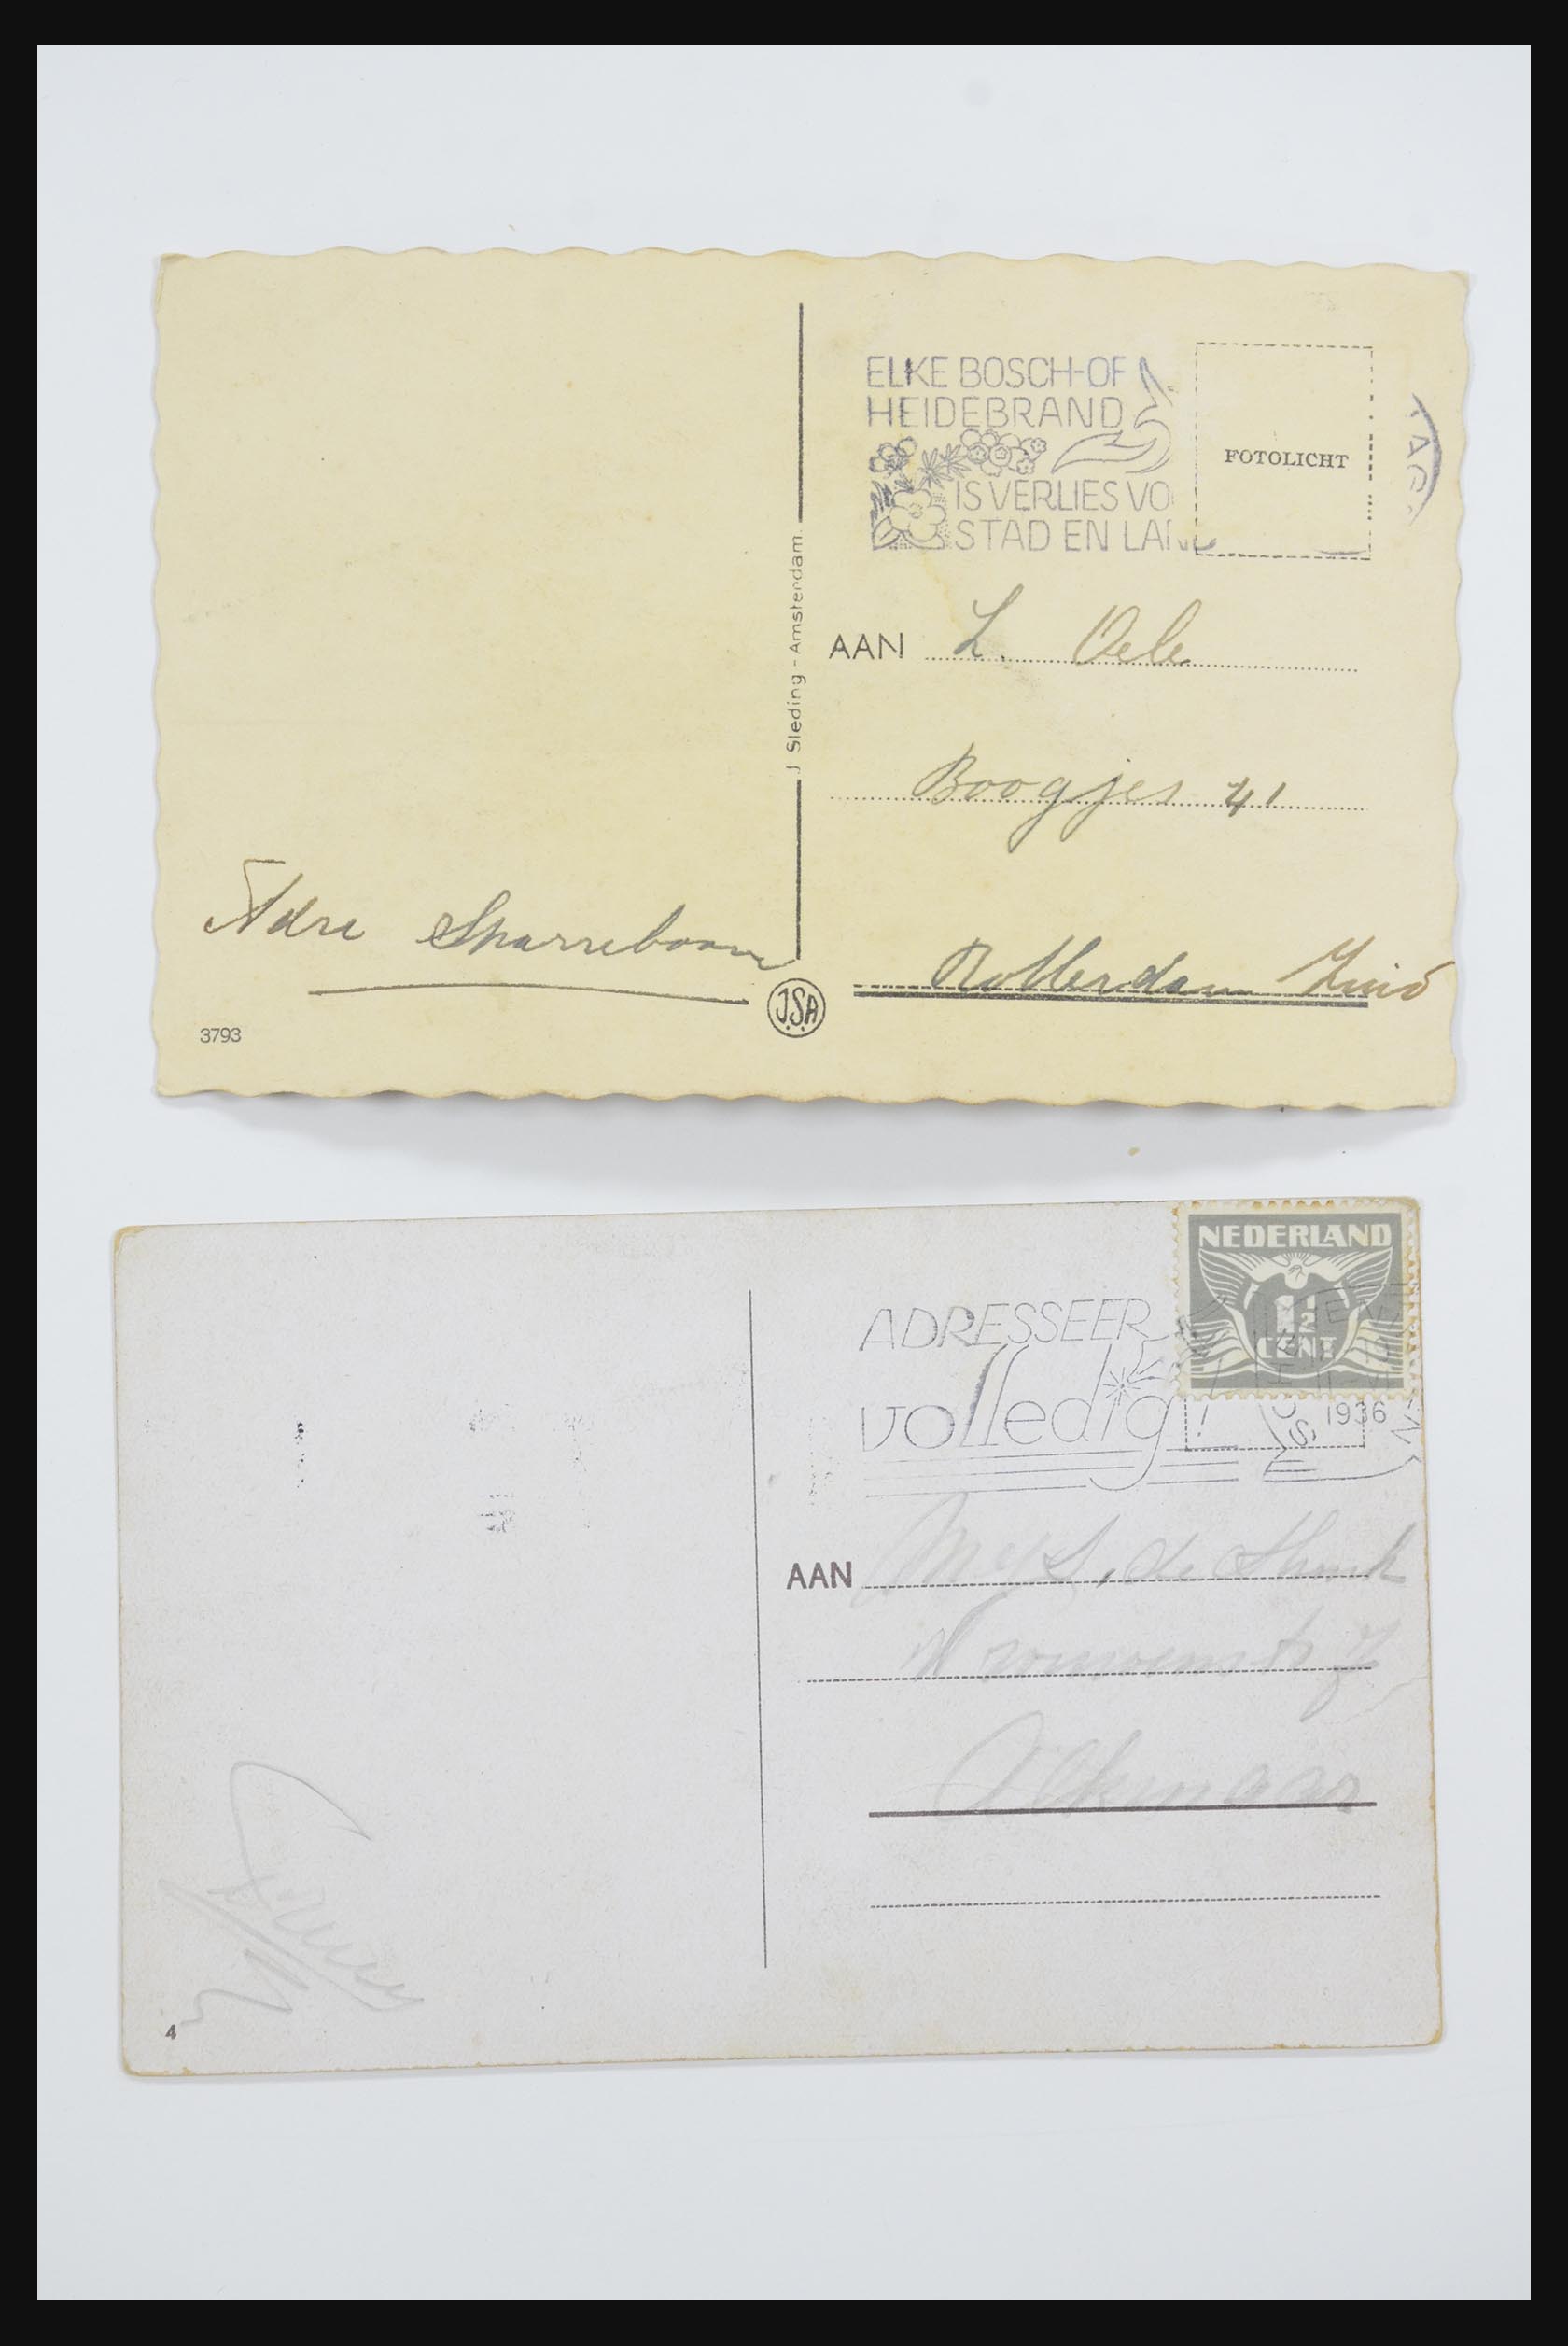 ELKE BOSCH-OF
HEIDEBRAND
IS VERLIES VO
STAD EN LAND
FOTOLICHT
J Sleding - Amsterdam.
AAN L. Oele
Boogjes 41
Adre Sparreboom
Rotterdam Zuid
J.S.A
3793
NEDERLAND
1½
CENT
ADRESSEER
volledig!
1936
AAN de
Alkmaar
4